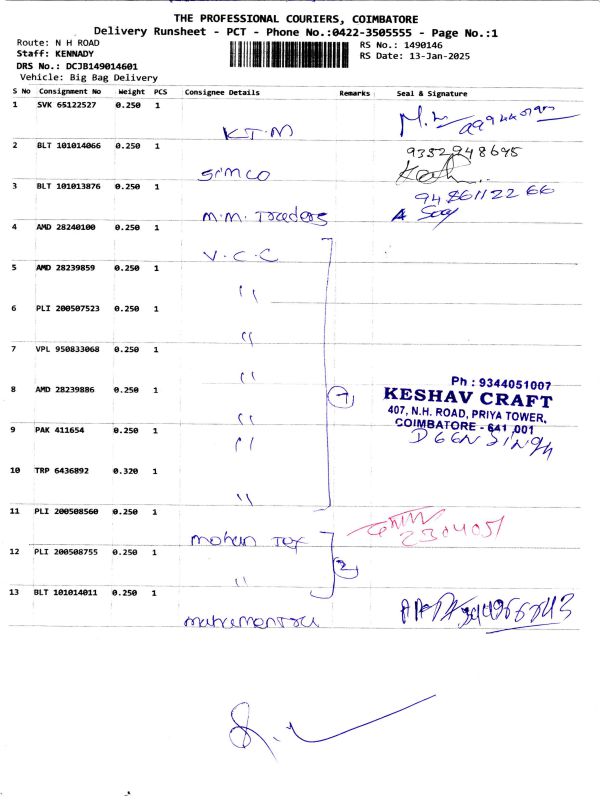 THE PROFESSIONAL COURIERS, COIMBATORE
Delivery Runsheet - PCT - Phone No.:0422-3505555 - Page No.:1
Route: N H ROAD
Staff: KENNADY
DRS No.: DCJB149014601
Vehicle: Big Bag Delivery
RS No.: 1490146
RS Date: 13-Jan-2025
S No Consignment No Weight PCS Consignee Details Remarks Seal & Signature
1 SVK 65122527 0.250 1
K.T.M
2 BLT 101014066 0.250 1
9352948695
Simco
3 BLT 101013876 0.250 1
9486112266
M.M. Traders
4 AMD 28240100 0.250 1
V.C.C
5 AMD 28239859 0.250 1
"
6 PLI 200507523 0.250 1
"
7 VPL 950833068 0.250 1
"
8 AMD 28239886 0.250 1
"
7
Ph : 9344051007
KESHAV CRAFT
407, N.H. ROAD, PRIYA TOWER,
COIMBATORE - 641 001
DEEN SINGH
9 PAK 411654 0.250 1
"
10 TRP 6436892 0.320 1
"
11 PLI 200508560 0.250 1
2304051
Mohan Tex
12 PLI 200508755 0.250 1
2
"
13 BLT 101014011 0.250 1